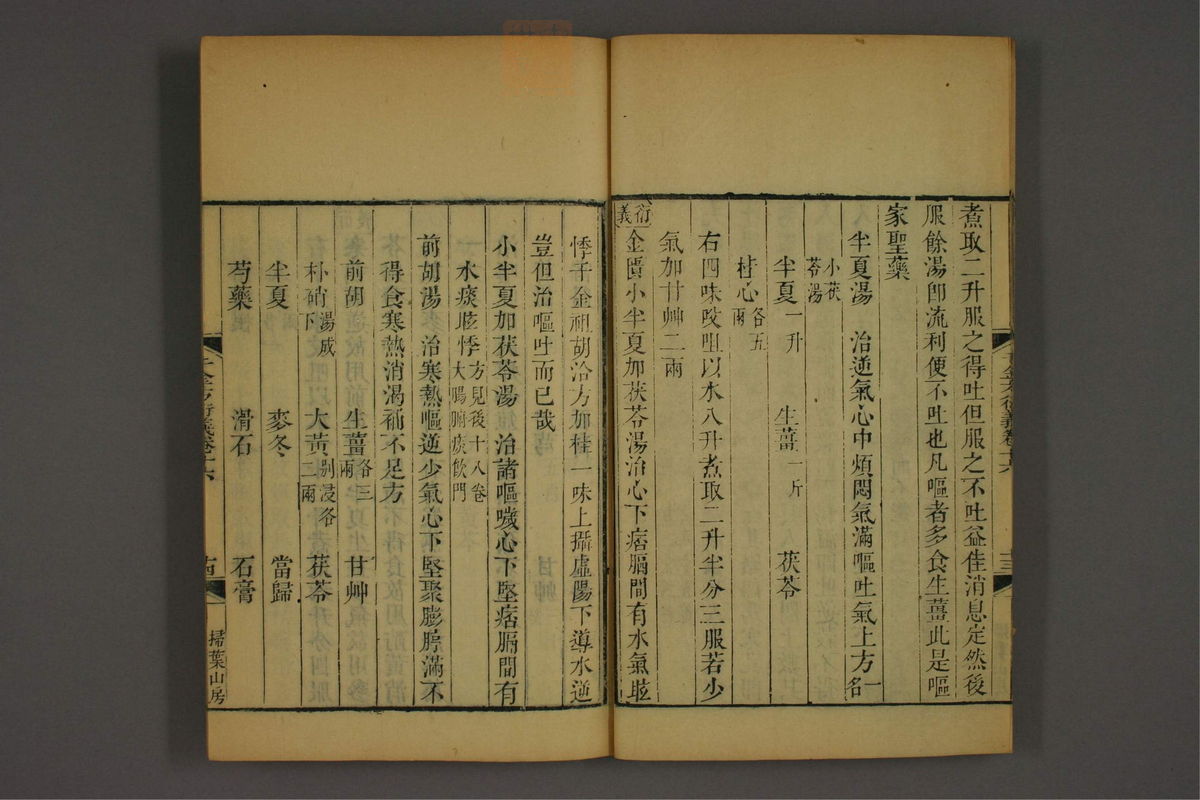 煮取二升服之得吐但服之不吐益佳消息定然後
服餘湯卽流利便不吐也凡嘔者多食生薑此是嘔
家聖藥
半夏湯 治逆氣心中煩悶氣滿嘔吐氣上方一名
小茯
苓湯
半夏一升 生薑一斤 茯苓
桂心各五
兩
右四味㕮咀以水八升煮取二升半分三服若少
氣加甘艸二兩
衍義
金匱小半夏加茯苓湯治心下痞膈間有水氣眩
千金方衍義卷十六
十三
悸千金祖胡洽方加桂一味上攝虛陽下導水逆
豈但治嘔吐而已哉
小半夏加茯苓湯 治諸嘔噦心下堅痞膈間有
水痰眩悸方見後十八卷
大腸腑痰飲門
前胡湯 治寒熱嘔逆少氣心下堅聚膨脝滿不
得食寒熱消渴補不足方
前胡 生薑各三
兩 甘艸
朴硝湯成
下 大黃別浸各
二兩 茯苓
半夏 麥冬 當歸
芍藥 滑石 石膏
千金方衍義卷十六
十四
掃葉山房